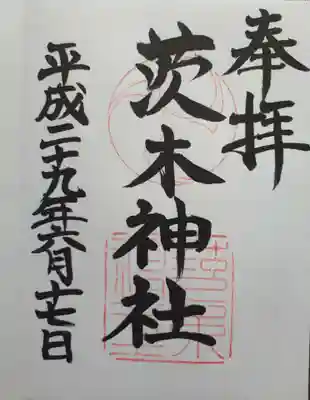 奉拝
茨木神社
平成二十九年六月十七日